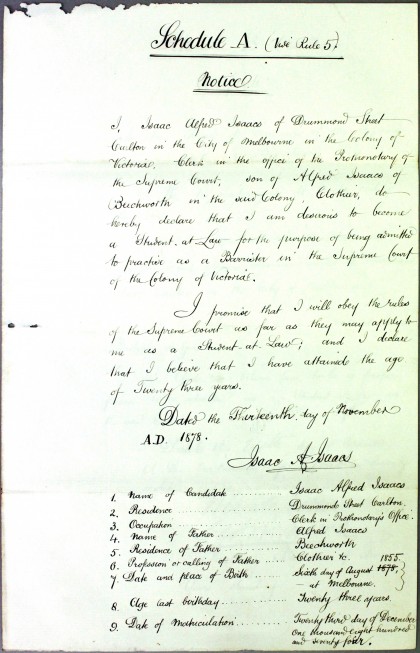 Schedule A. (Vide Rule 5)
Notice
I, Isaac Alfred Isaacs of Drummond Street
Carlton in the City of Melbourne in the Colony of
Victoria, Clerk in the office of the Prothonotary of
the Supreme Court, son of Alfred Isaacs of
Beechworth in the said Colony, Clothier, do
hereby declare that I am desirous to become
a Student-at-Law for the purpose of being admitted
to practise as a Barrister in the Supreme Court
of the Colony of Victoria.
I promise that I will obey the rules
of the Supreme Court as far as they may apply to
me as a Student-at-Law; and I declare
that I believe that I have attained the age
of Twenty three years.
Dated the Thirteenth day of November
A.D. 1878.
Isaac A Isaacs
1. Name of Candidate ........... Isaac Alfred Isaacs
2. Residence ........... Drummond Street Carlton.
3. Occupation ........... Clerk in Prothonotary's Office.
4. Name of Father ........... Alfred Isaacs
5. Residence of Father ........... Beechworth
6. Profession or calling of Father ........... Clothier &c.
7. Date and place of Birth ........... Sixth day of August 1878, 1855
— at Melbourne.
8. Age last birthday ........... Twenty three years.
9. Date of Matriculation ........... Twenty third day of December
One thousand eight hundred
and seventy four.